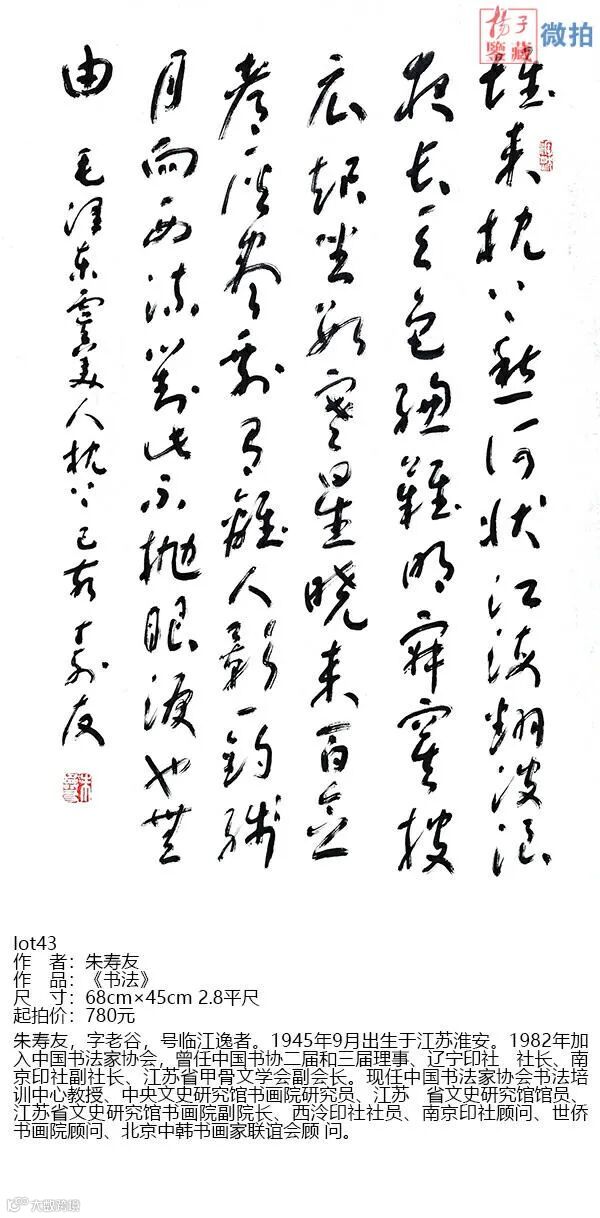 楊子
鑒藏
微拍
堆来枕上愁何状江海翻波浪
夜长天色總難明寂寞披
衣起坐数寒星晓来百念
都灰尽剩有離人影一钩残
月向西流對此不抛眼淚也無
由
毛泽东虞美人枕上己亥寿友
lot43
作 者：朱寿友
作 品：《书法》
尺 寸：68cm×45cm 2.8平尺
起拍价：780元
朱寿友，字老谷，号临江逸者。1945年9月出生于江苏淮安。1982年加
入中国书法家协会，曾任中国书协二届和三届理事、辽宁印社 社长、南
京印社副社长、江苏省甲骨文学会副会长。现任中国书法家协会书法培
训中心教授、中央文史研究馆书画院研究员、江苏 省文史研究馆馆员、
江苏省文史研究馆书画院副院长、西泠印社社员、南京印社顾问、世侨
书画院顾问、北京中韩书画家联谊会顾 问。
大数跨境